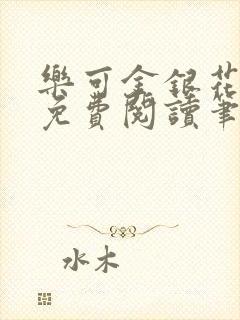 樂可金銀花
免費閱讀筆
水木